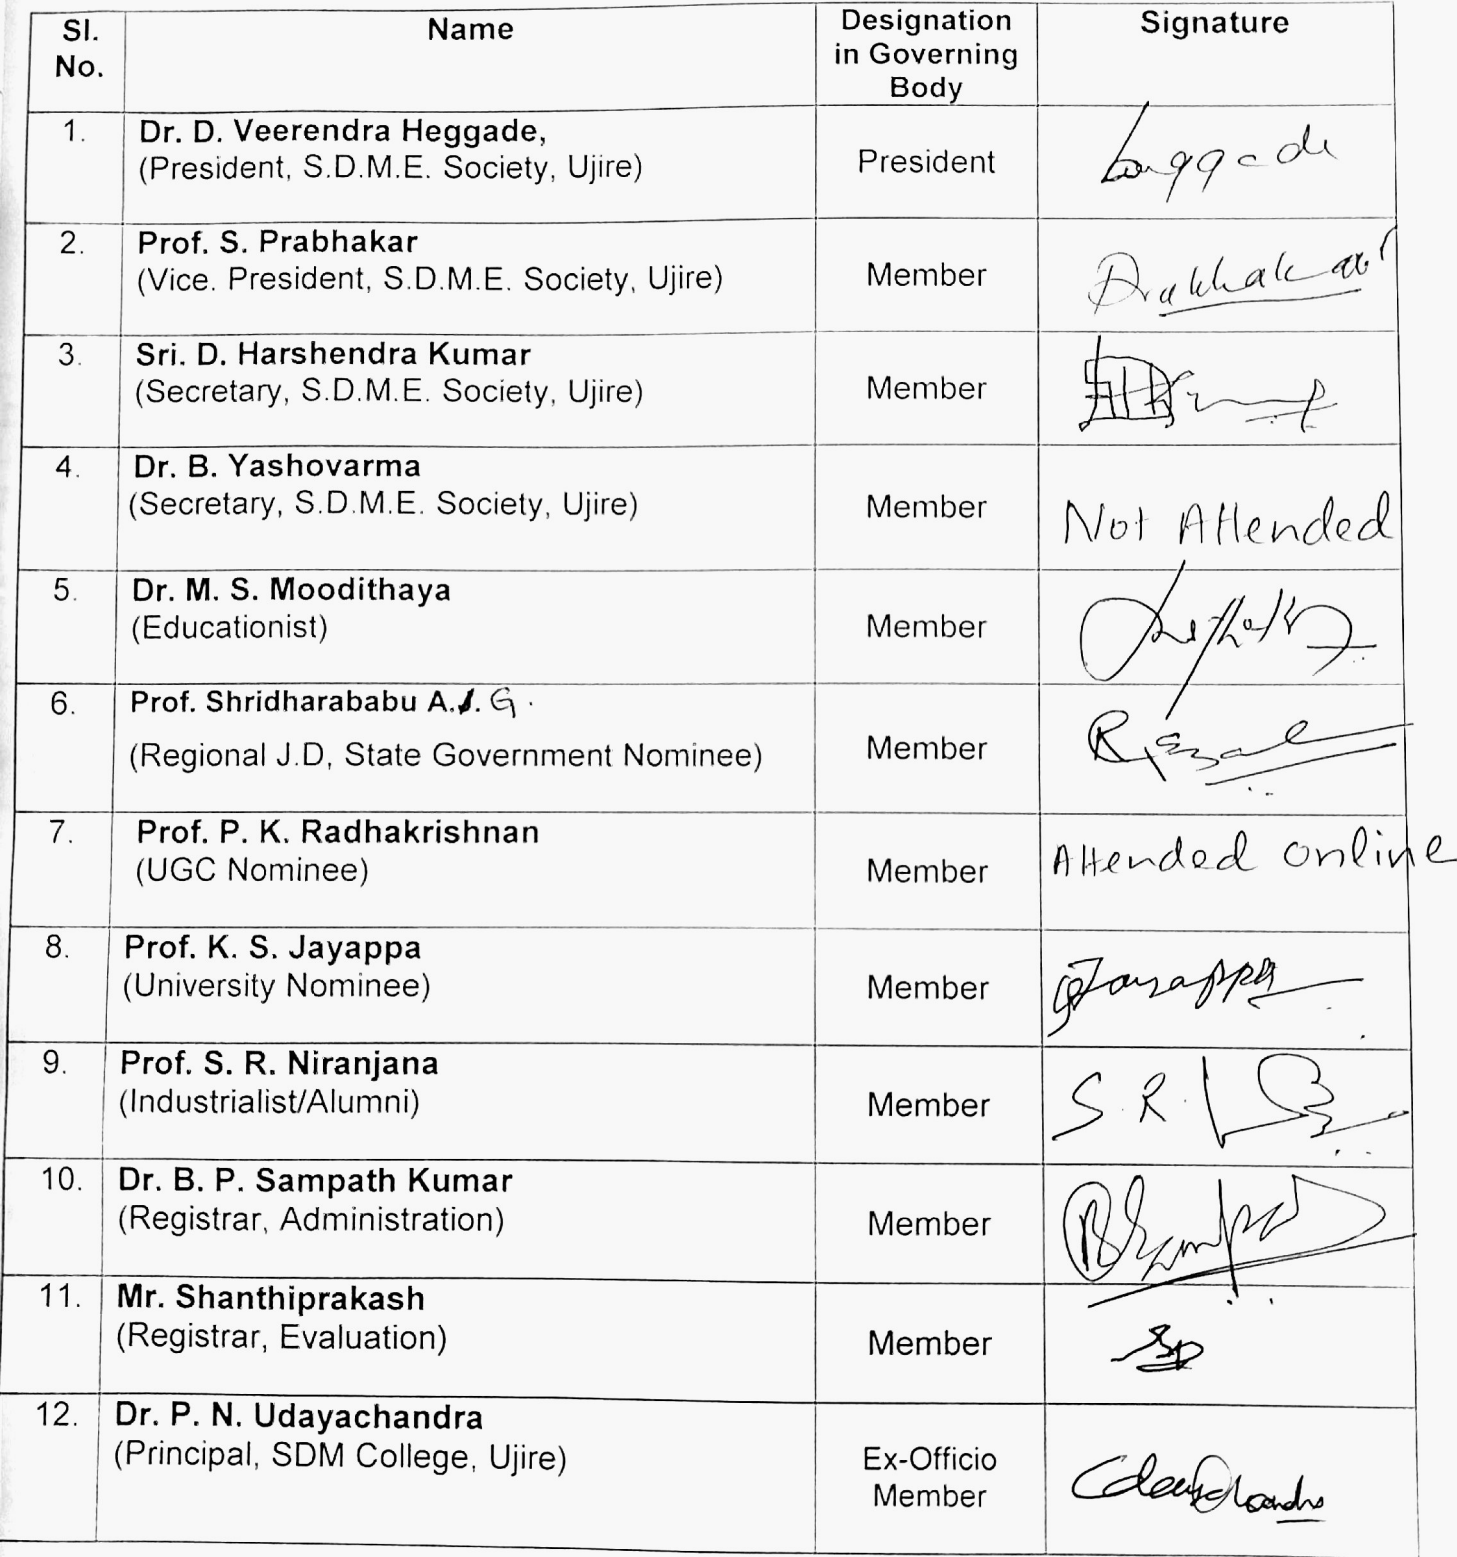 Sl. No.
Name
Designation in Governing Body
Signature
1.
Dr. D. Veerendra Heggade,
(President, S.D.M.E. Society, Ujire)
President
2.
Prof. S. Prabhakar
(Vice. President, S.D.M.E. Society, Ujire)
Member
Prabhakar
3.
Sri. D. Harshendra Kumar
(Secretary, S.D.M.E. Society, Ujire)
Member
4.
Dr. B. Yashovarma
(Secretary, S.D.M.E. Society, Ujire)
Member
Not Attended
5.
Dr. M. S. Moodithaya
(Educationist)
Member
6.
Prof. Shridharababu A. G.
(Regional J.D, State Government Nominee)
Member
7.
Prof. P. K. Radhakrishnan
(UGC Nominee)
Member
Attended online
8.
Prof. K. S. Jayappa
(University Nominee)
Member
Jayappa
9.
Prof. S. R. Niranjana
(Industrialist/Alumni)
Member
S. R.
10.
Dr. B. P. Sampath Kumar
(Registrar, Administration)
Member
11.
Mr. Shanthiprakash
(Registrar, Evaluation)
Member
12.
Dr. P. N. Udayachandra
(Principal, SDM College, Ujire)
Ex-Officio
Member